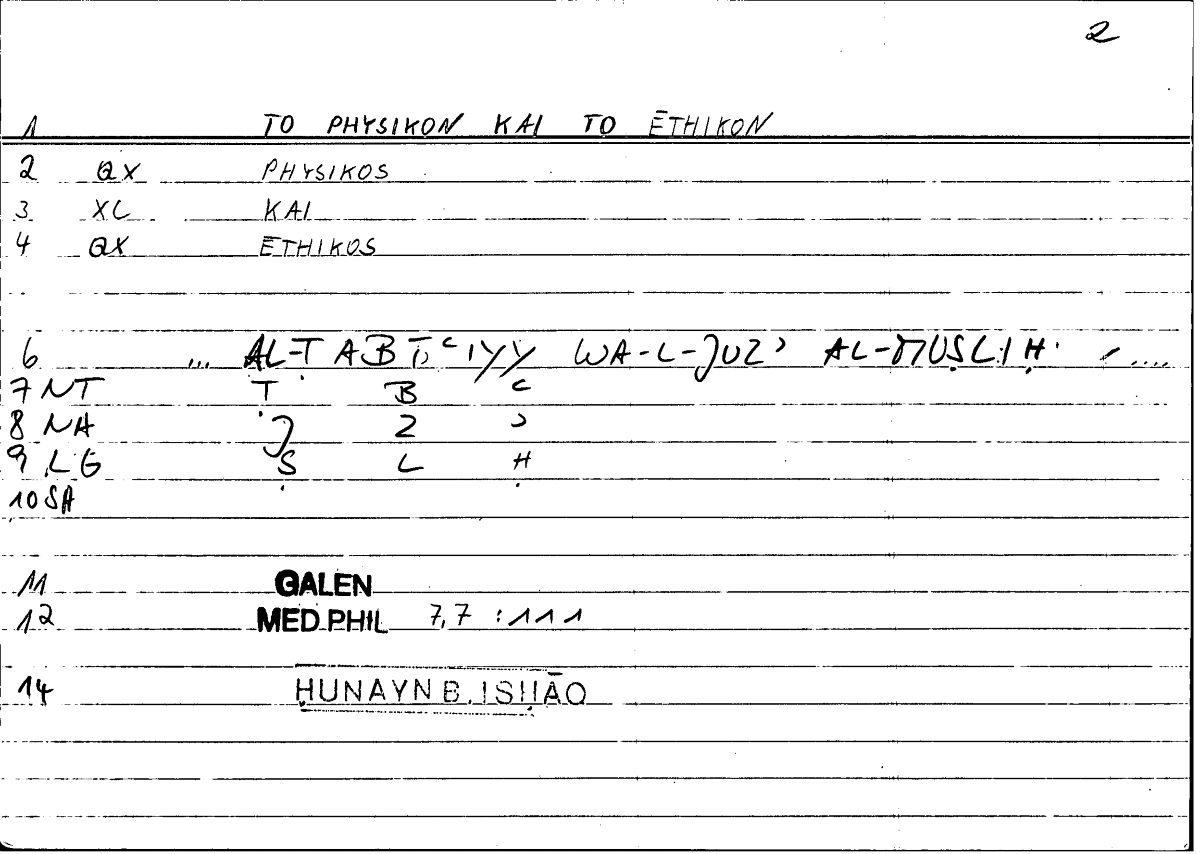 2
1 TO PHYSIKON KAI TO ĒTHIKON
2 QX PHYSIKOS
3 XC KAI
4 QX ĒTHIKOS
6 ... WA-L-JUZʾ AL-MUṢLIḤ ....
7 NT Ṭ B ʿ
8 NA J Z ʾ
9 LG Ṣ L Ḥ
10 SA
11 GALEN
12 MED.PHIL 7,7 : 111
14 ḤUNAYN B. ISḤĀQ